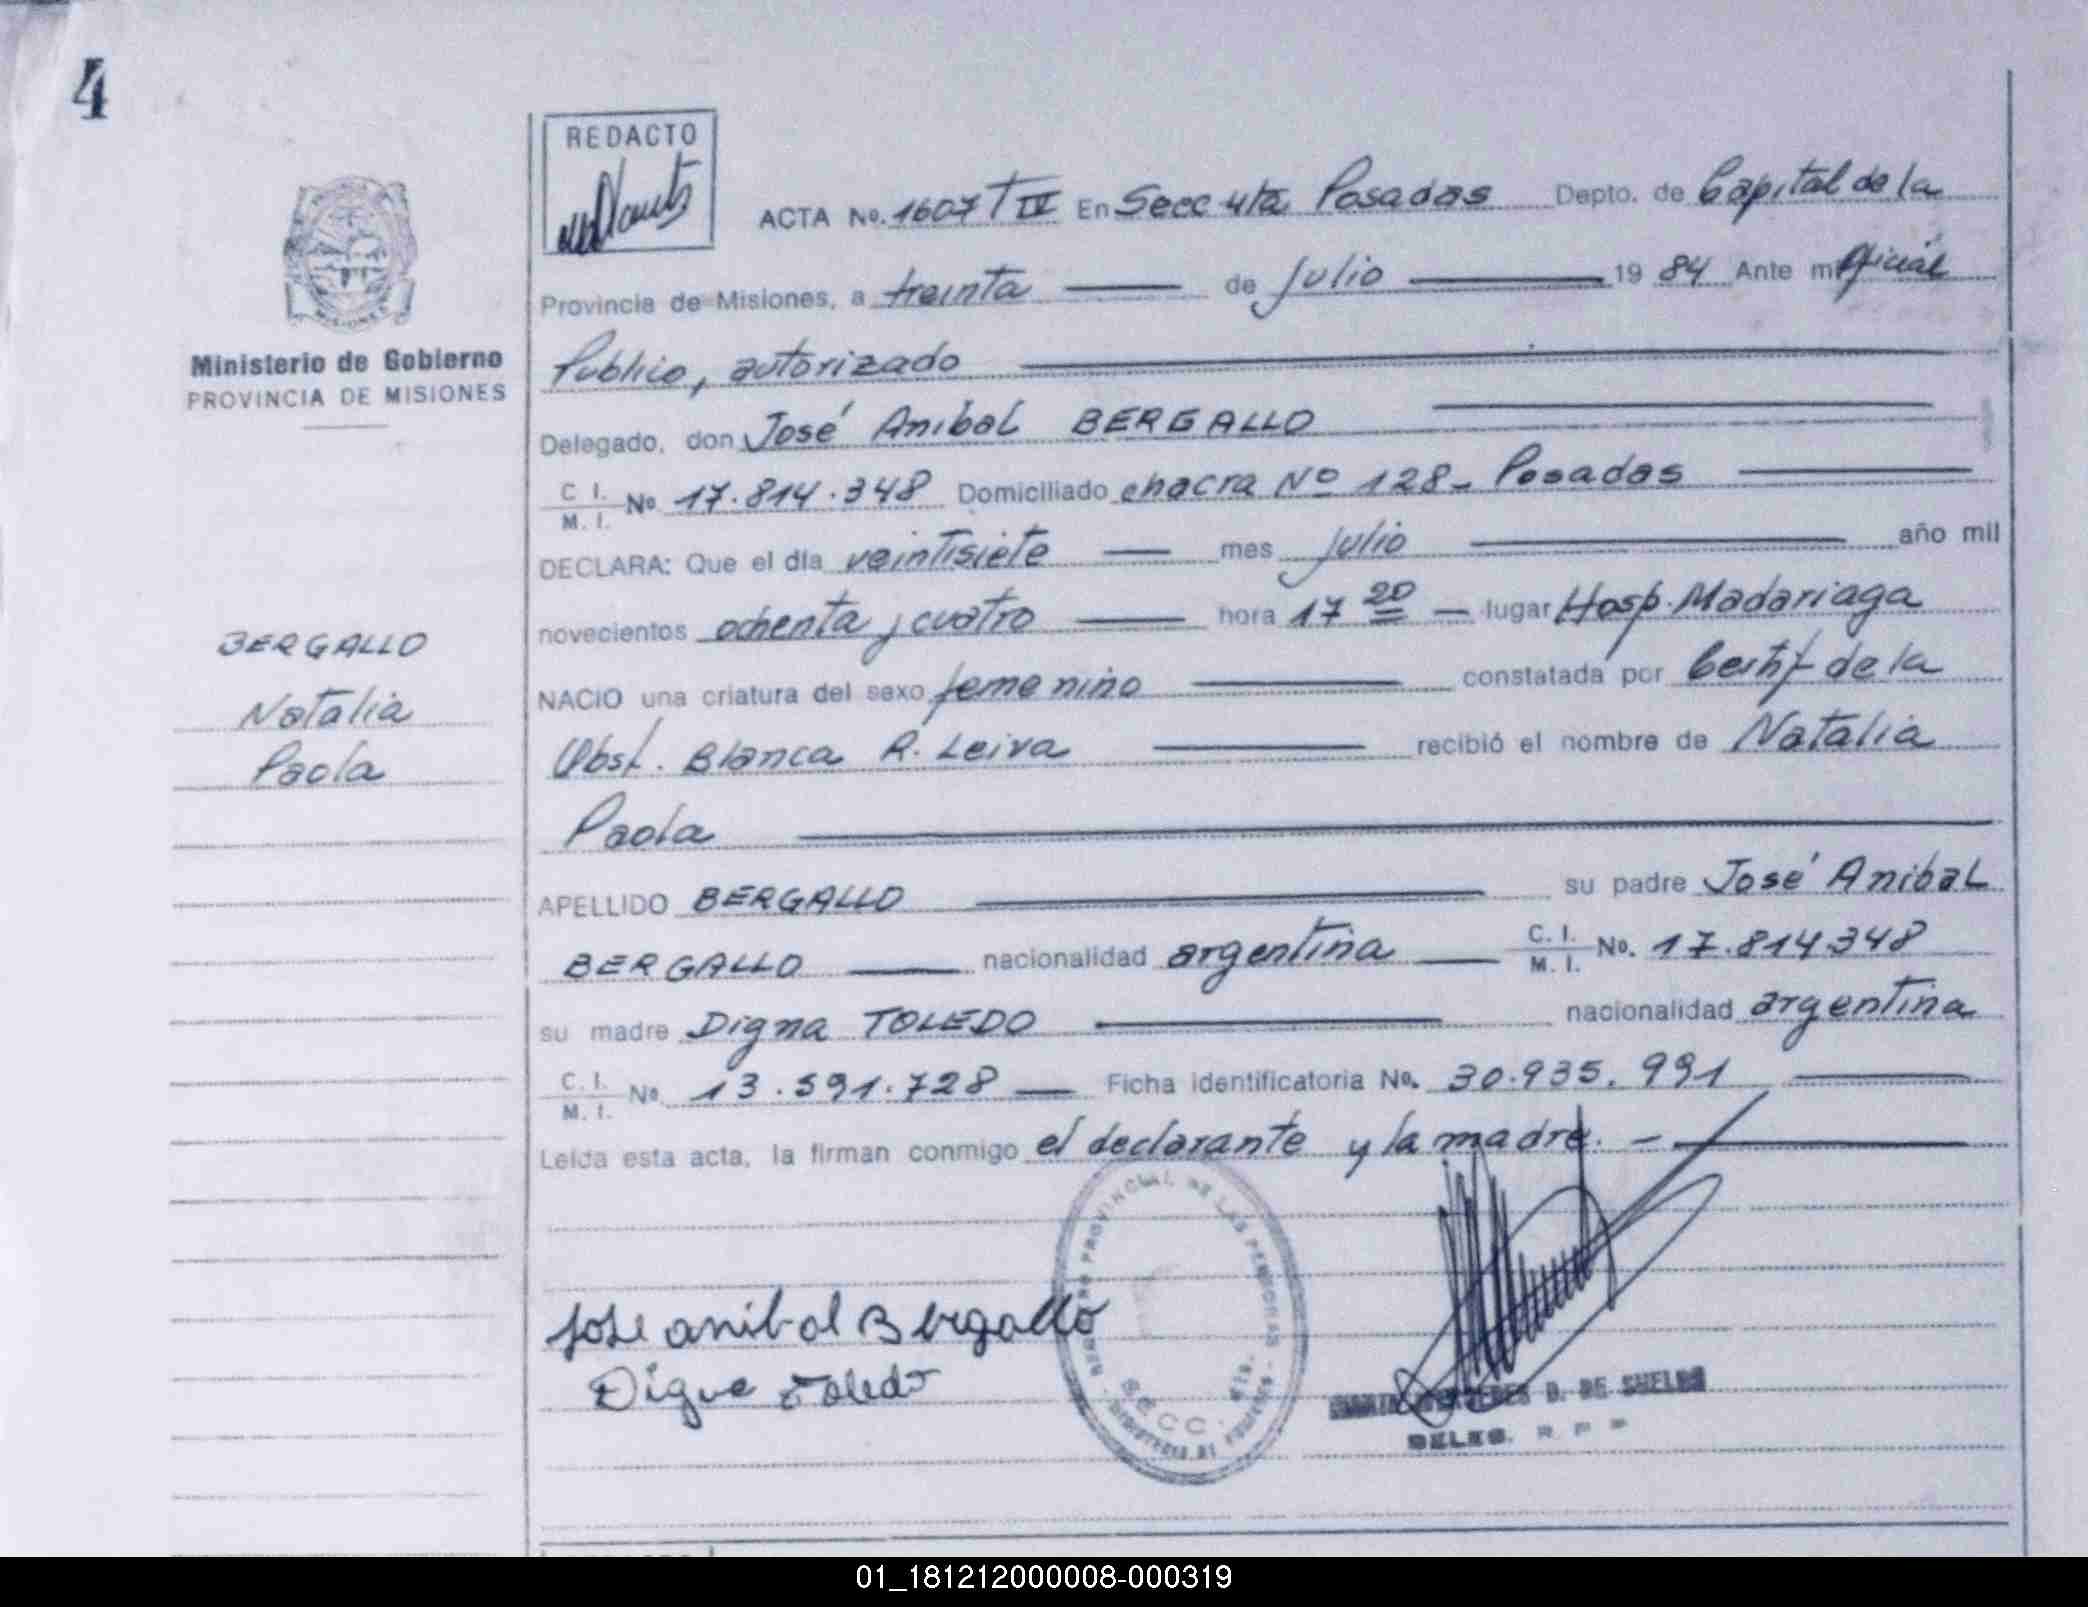 4
REDACTO
ACTA No. 1607 T IV En Secc 4ta Posadas Depto. de Capital de la
Provincia de Misiones, a treinta de Julio 1984 Ante mi Oficial
Publico, autorizado
MISIONES
Ministerio de Gobierno
PROVINCIA DE MISIONES
Delegado, don José Anibal BERGALLO
C. I. M. I. No 17.814.348 Domiciliado chacra Nº 128- Posadas
DECLARA: Que el día veintisiete mes Julio año mil
novecientos ochenta y cuatro hora 17 20 lugar Hosp. Madariaga
BERGALLO
Natalia
Paola
NACIO una criatura del sexo femenino constatada por Certif de la
Obst. Blanca R. Leiva recibió el nombre de Natalia
Paola
APELLIDO BERGALLO su padre José Anibal
BERGALLO nacionalidad argentina C. I. M. I. No. 17.814348
su madre Digna TOLEDO nacionalidad argentina
C. I. M. I. No. 13.591.728 Ficha identificatoria No. 30.935.991
Leída esta acta, la firman conmigo el declarante y la madre. -
PROVINCIAL DE LAS PERSONAS
Jose anibal Bergallo
Digna Toledo
D. DE
DELEG. R P P
01_181212000008-000319